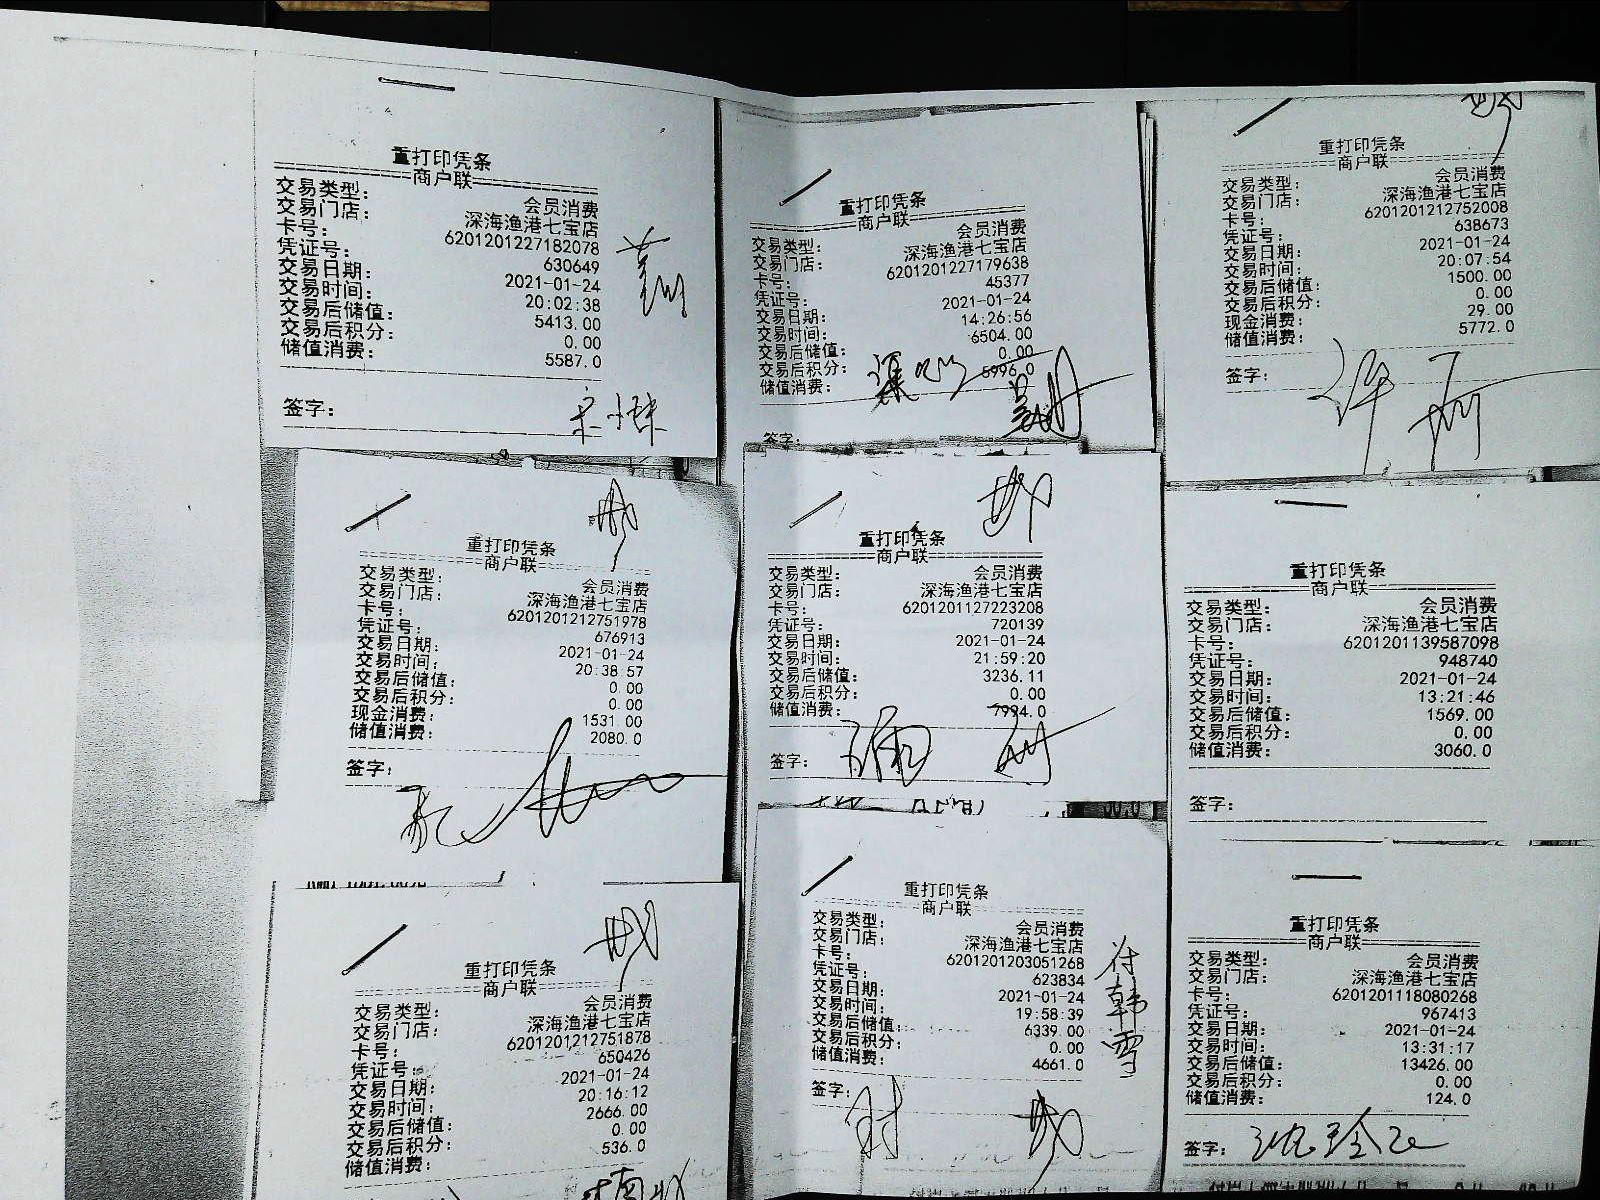 重打印凭条
商户联
交易类型： 会员消费
交易门店： 深海渔港七宝店
卡号： 6201201227182078
凭证号： 630649
交易日期： 2021-01-24
交易时间： 20:02:38
交易后储值： 5413.00
交易后积分： 0.00
储值消费： 5587.0
签字：
重打印凭条
商户联
交易类型： 会员消费
交易门店： 深海渔港七宝店
卡号： 6201201227179638
凭证号： 45377
交易日期： 2021-01-24
交易时间： 14:26:56
交易后储值： 6504.00
交易后积分： 0.00
储值消费： 5996.0
签字：
重打印凭条
商户联
交易类型： 会员消费
交易门店： 深海渔港七宝店
卡号： 6201201212752008
凭证号： 638673
交易日期： 2021-01-24
交易时间： 20:07:54
交易后储值： 1500.00
交易后积分： 0.00
现金消费： 29.00
储值消费： 5772.0
签字：
重打印凭条
商户联
交易类型： 会员消费
交易门店： 深海渔港七宝店
卡号： 6201201212751978
凭证号： 676913
交易日期： 2021-01-24
交易时间： 20:38:57
交易后储值： 0.00
交易后积分： 0.00
现金消费： 1531.00
储值消费： 2080.0
签字：
重打印凭条
商户联
交易类型： 会员消费
交易门店： 深海渔港七宝店
卡号： 6201201127223208
凭证号： 720139
交易日期： 2021-01-24
交易时间： 21:59:20
交易后储值： 3236.11
交易后积分： 0.00
储值消费： 7994.0
签字：
重打印凭条
商户联
交易类型： 会员消费
交易门店： 深海渔港七宝店
卡号： 6201201139587098
凭证号： 948740
交易日期： 2021-01-24
交易时间： 13:21:46
交易后储值： 1569.00
交易后积分： 0.00
储值消费： 3060.0
签字：
重打印凭条
商户联
交易类型： 会员消费
交易门店： 深海渔港七宝店
卡号： 6201201212751878
凭证号： 650426
交易日期： 2021-01-24
交易时间： 20:16:12
交易后储值： 2666.00
交易后积分： 0.00
储值消费： 536.0
重打印凭条
商户联
交易类型： 会员消费
交易门店： 深海渔港七宝店
卡号： 6201201203051268
凭证号： 623834
交易日期： 2021-01-24
交易时间： 19:58:39
交易后储值： 6339.00
交易后积分： 0.00
储值消费： 4661.0
签字：
付韩雪
重打印凭条
商户联
交易类型： 会员消费
交易门店： 深海渔港七宝店
卡号： 6201201118080268
凭证号： 967413
交易日期： 2021-01-24
交易时间： 13:31:17
交易后储值： 13426.00
交易后积分： 0.00
储值消费： 124.0
签字：